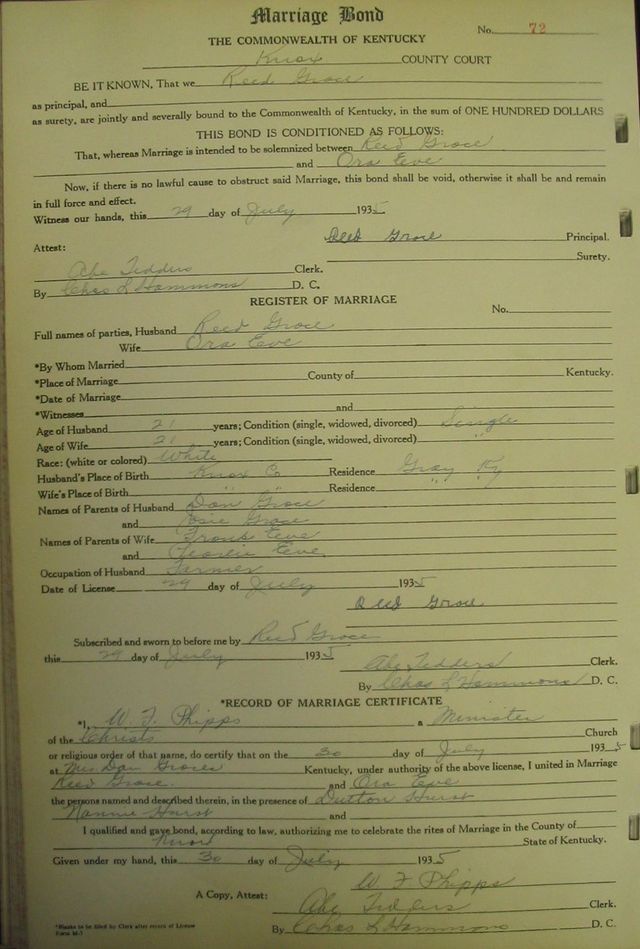 Marriage Bond
No. 72
THE COMMONWEALTH OF KENTUCKY
Knox COUNTY COURT
BE IT KNOWN, That we Reed Groce
as principal, and
as surety, are jointly and severally bound to the Commonwealth of Kentucky, in the sum of ONE HUNDRED DOLLARS
THIS BOND IS CONDITIONED AS FOLLOWS:
That, whereas Marriage is intended to be solemnized between Reed Groce
and Ora Eve
Now, if there is no lawful cause to obstruct said Marriage, this bond shall be void, otherwise it shall be and remain
in full force and effect.
Witness our hands, this 29 day of July 1935
Reed Groce Principal.
Surety.
Attest:
Abe Tedders Clerk.
By Chas L Hammons D. C.
REGISTER OF MARRIAGE
No.
Full names of parties, Husband Reed Groce
Wife Ora Eve
*By Whom Married
*Place of Marriage County of Kentucky.
*Date of Marriage
*Witnesses and
Age of Husband 21 years; Condition (single, widowed, divorced) Single
Age of Wife 21 years; Condition (single, widowed, divorced) "
Race: (white or colored) White
Husband's Place of Birth Knox Co Residence Gray Ky
Wife's Place of Birth " " Residence " "
Names of Parents of Husband Dan Groce
and Groce
Names of Parents of Wife Eve
and Eve
Occupation of Husband Farmer
Date of License 29 day of July 1935
Reed Groce
Subscribed and sworn to before me by Reed Groce
this 29 day of July 1935
Abe Tedders Clerk.
By Chas L Hammons D. C.
*RECORD OF MARRIAGE CERTIFICATE
*I, W. F. Phipps a Minister
of the Christs Church
or religious order of that name, do certify that on the 30 day of July 1935
at Mrs Dan Groces Kentucky, under authority of the above license, I united in Marriage
Reed Groce. and Ora Eve
the persons named and described therein, in the presence of Dutton Hurst
Nannie Hurst and
I qualified and gave bond, according to law, authorizing me to celebrate the rites of Marriage in the County of
Knox State of Kentucky.
Given under my hand, this 30 day of July 1935
W F Phipps
A Copy, Attest: Abe Tedders Clerk.
By Chas L Hammons D. C.
*Blanks to be filled by Clerk after return of License
Form M-3